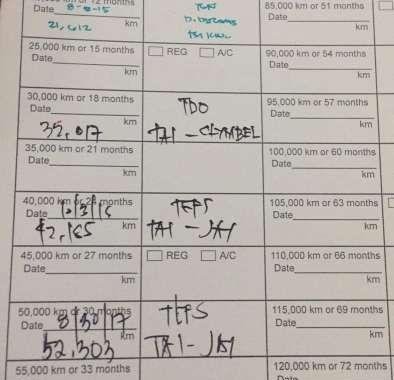 or 12 months
Date 8-8-15
21,612 km
85,000 km or 51 months
Date
km
25,000 km or 15 months
Date
km
REG A/C
90,000 km or 54 months
Date
km
30,000 km or 18 months
Date
35,017 km
TDO
95,000 km or 57 months
Date
km
35,000 km or 21 months
Date
km
100,000 km or 60 months
Date
km
40,000 km or 24 months
Date
42,165 km
TEPS
TAI - JAY
105,000 km or 63 months
Date
km
45,000 km or 27 months
Date
km
REG A/C
110,000 km or 66 months
Date
km
50,000 km or 30 months
Date 8/30/17
52,303 km
TEPS
TAI - JAY
115,000 km or 69 months
Date
km
55,000 km or 33 months
120,000 km or 72 months
Date